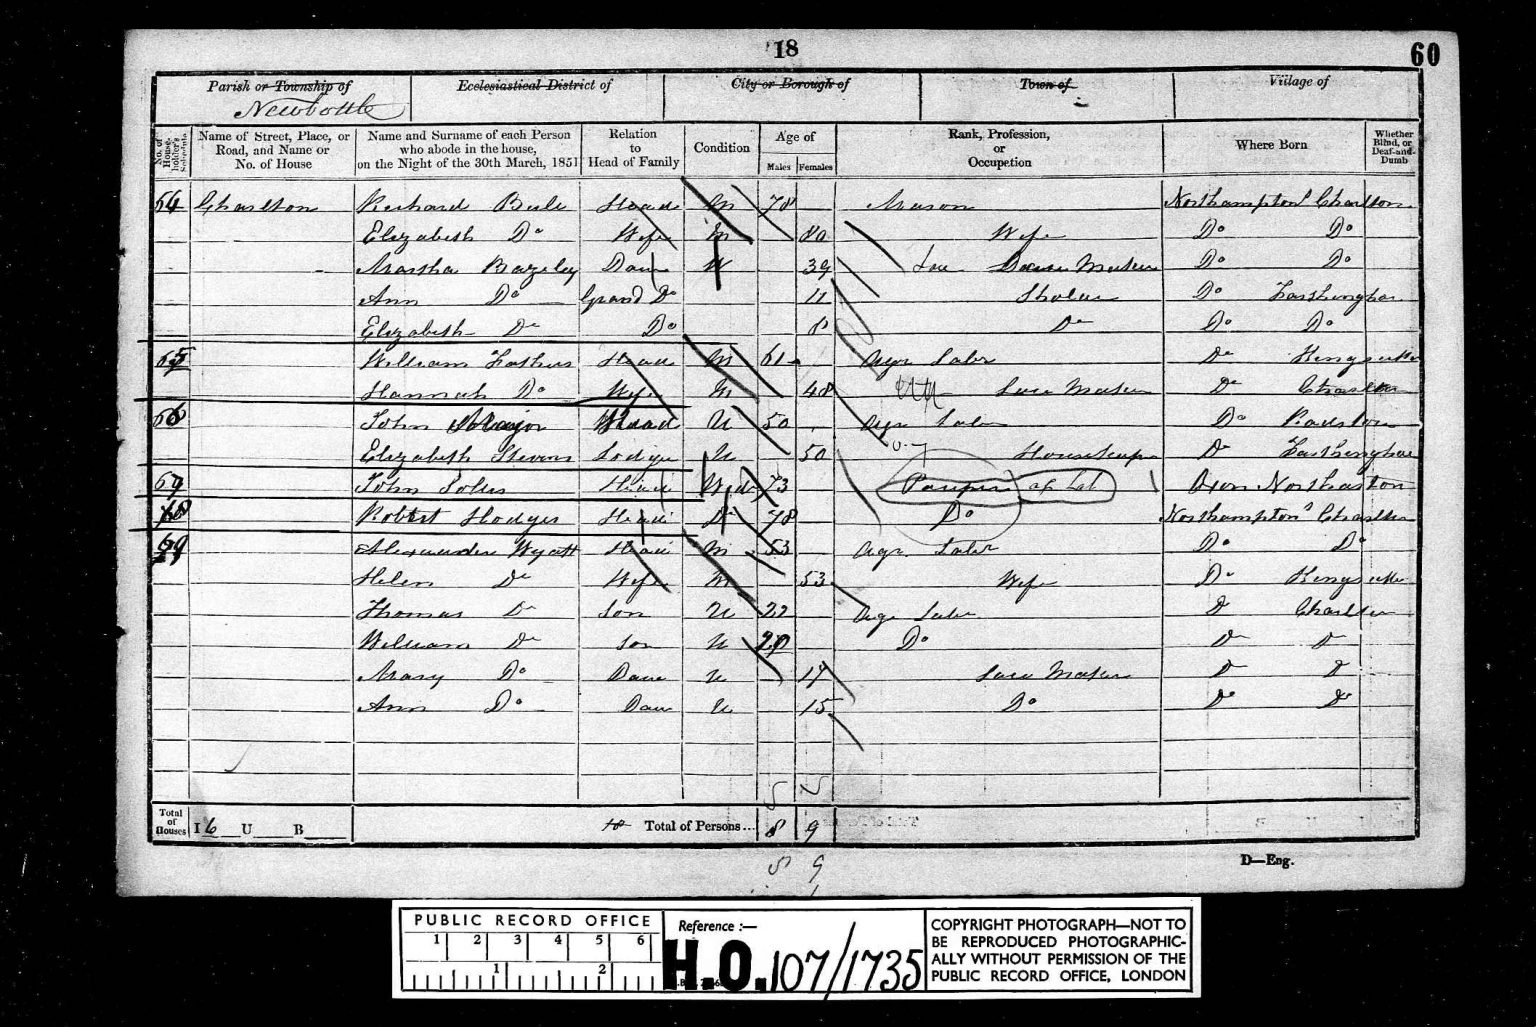 18
60
Parish or Township of
Newbottle
Ecclesiastical District of
City or Borough of
Town of
Village of
No. of House-holder's Schedule
Name of Street, Place, or Road, and Name or No. of House
Name and Surname of each Person who abode in the house, on the Night of the 30th March, 1851
Relation to Head of Family
Condition
Age of
Males Females
Rank, Profession, or Occupation
Where Born
Whether Blind, or Deaf-and-Dumb
64 Charlton Richard Head M 78 Mason Northampton Charlton
Elizabeth Do Wife M 80 Wife Do Do
Martha Bazeley Daur W 39 Lace Maker Do Do
Ann Do Grand Do 11 Scholar Do Farthinghoe
Elizabeth Do Do 8 Do Do Do
65 William Head M 61 Agr Labr Do Kingsutton
Hannah Do Wife M 48 Lace Maker Do Charlton
66 John Major Head U 50 Agr Labr Do Radston
Elizabeth Stevens Lodger U 50 Housekeeper Do Farthinghoe
67 John Head Widr 73 Pauper ag Lab Oxon
68 Robert Hodges Head Do 78 Do Northampton Charlton
69 Alexander Wyatt Head M 53 Agr Labr Do Do
Helen Do Wife M 53 Wife Do Kingsutton
Thomas Do Son U 22 Agr Labr Do Charlton
William Do Son U 20 Do Do Do
Mary Do Daur U 17 Lace Maker Do Do
Ann Do Daur U 15 Do Do Do
Total of Houses I 6 U B
Total of Persons... 8 9
D—Eng.
PUBLIC RECORD OFFICE
1 2 3 4 5 6
1 2
Reference :—
H.O. 107/1735
COPYRIGHT PHOTOGRAPH—NOT TO
BE REPRODUCED PHOTOGRAPHIC-
ALLY WITHOUT PERMISSION OF THE
PUBLIC RECORD OFFICE, LONDON